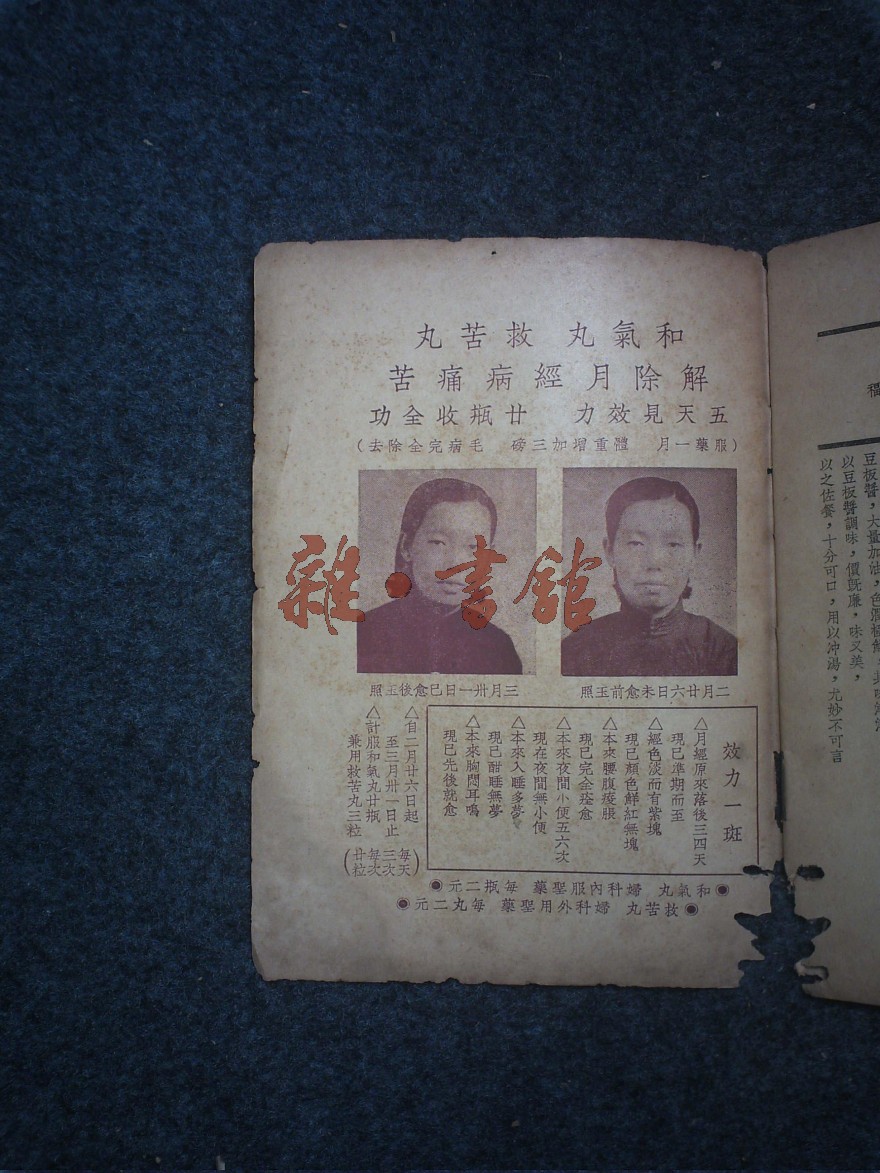 和氣丸 救苦丸
解除月經病痛苦
五天見效力 廿瓶收全功
(服藥一月 體重增加三磅 毛病完全除去)
二月廿六日未愈前玉照
三月卅一日已愈後玉照
效力一斑
△月經原來落後三四天
現已準期而至
△經色淡而有紫塊
現已顏色鮮紅無塊
△本來腰腹痠脹
現已完全痊愈
△本來夜間小便五六次
現在夜間無小便
△本來入睡多夢
現已酣睡無夢
△本來胸悶耳鳴
現已先後就愈
△自二月廿六日起
至三月卅一日止
△計服和氣丸廿瓶
兼用救苦丸三粒
(每天三次
每次廿粒)
◉和氣丸 婦科內服聖藥 每瓶二元◉
◉救苦丸 婦科外用聖藥 每丸二元◉
雜·書館
以豆板醬調味,價既廉,味又美,
以之佐餐,十分可口,用以沖湯,尤妙不可言